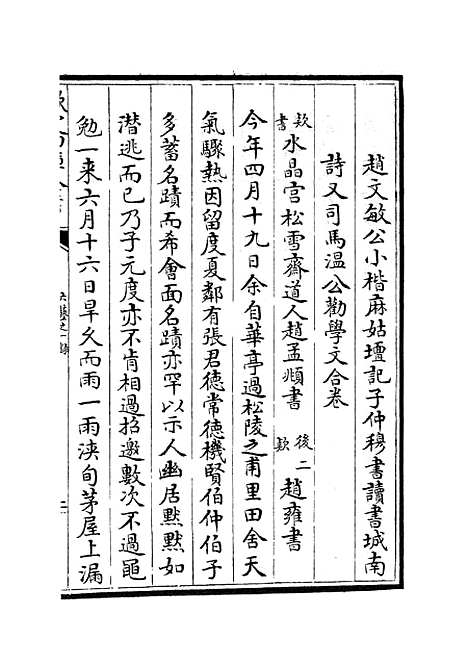 趙文敏公小楷麻姑壇記子仲穆書讀書城南
詩又司馬温公勸學文合卷
欵書水晶宫松雪齋道人趙孟頫書欵後二趙雍書
今年四月十九日余自華亭過松陵之甫里田舍天
氣驟熱因留度夏鄰有張君徳常徳機賢伯仲伯子
多蓄名蹟而希會面名蹟亦罕以示人幽居黙黙如
潜逃而已乃子元度亦不肯相過招邀數次不過黽
勉一来六月十六日旱乆而雨一雨浹旬茅屋上漏